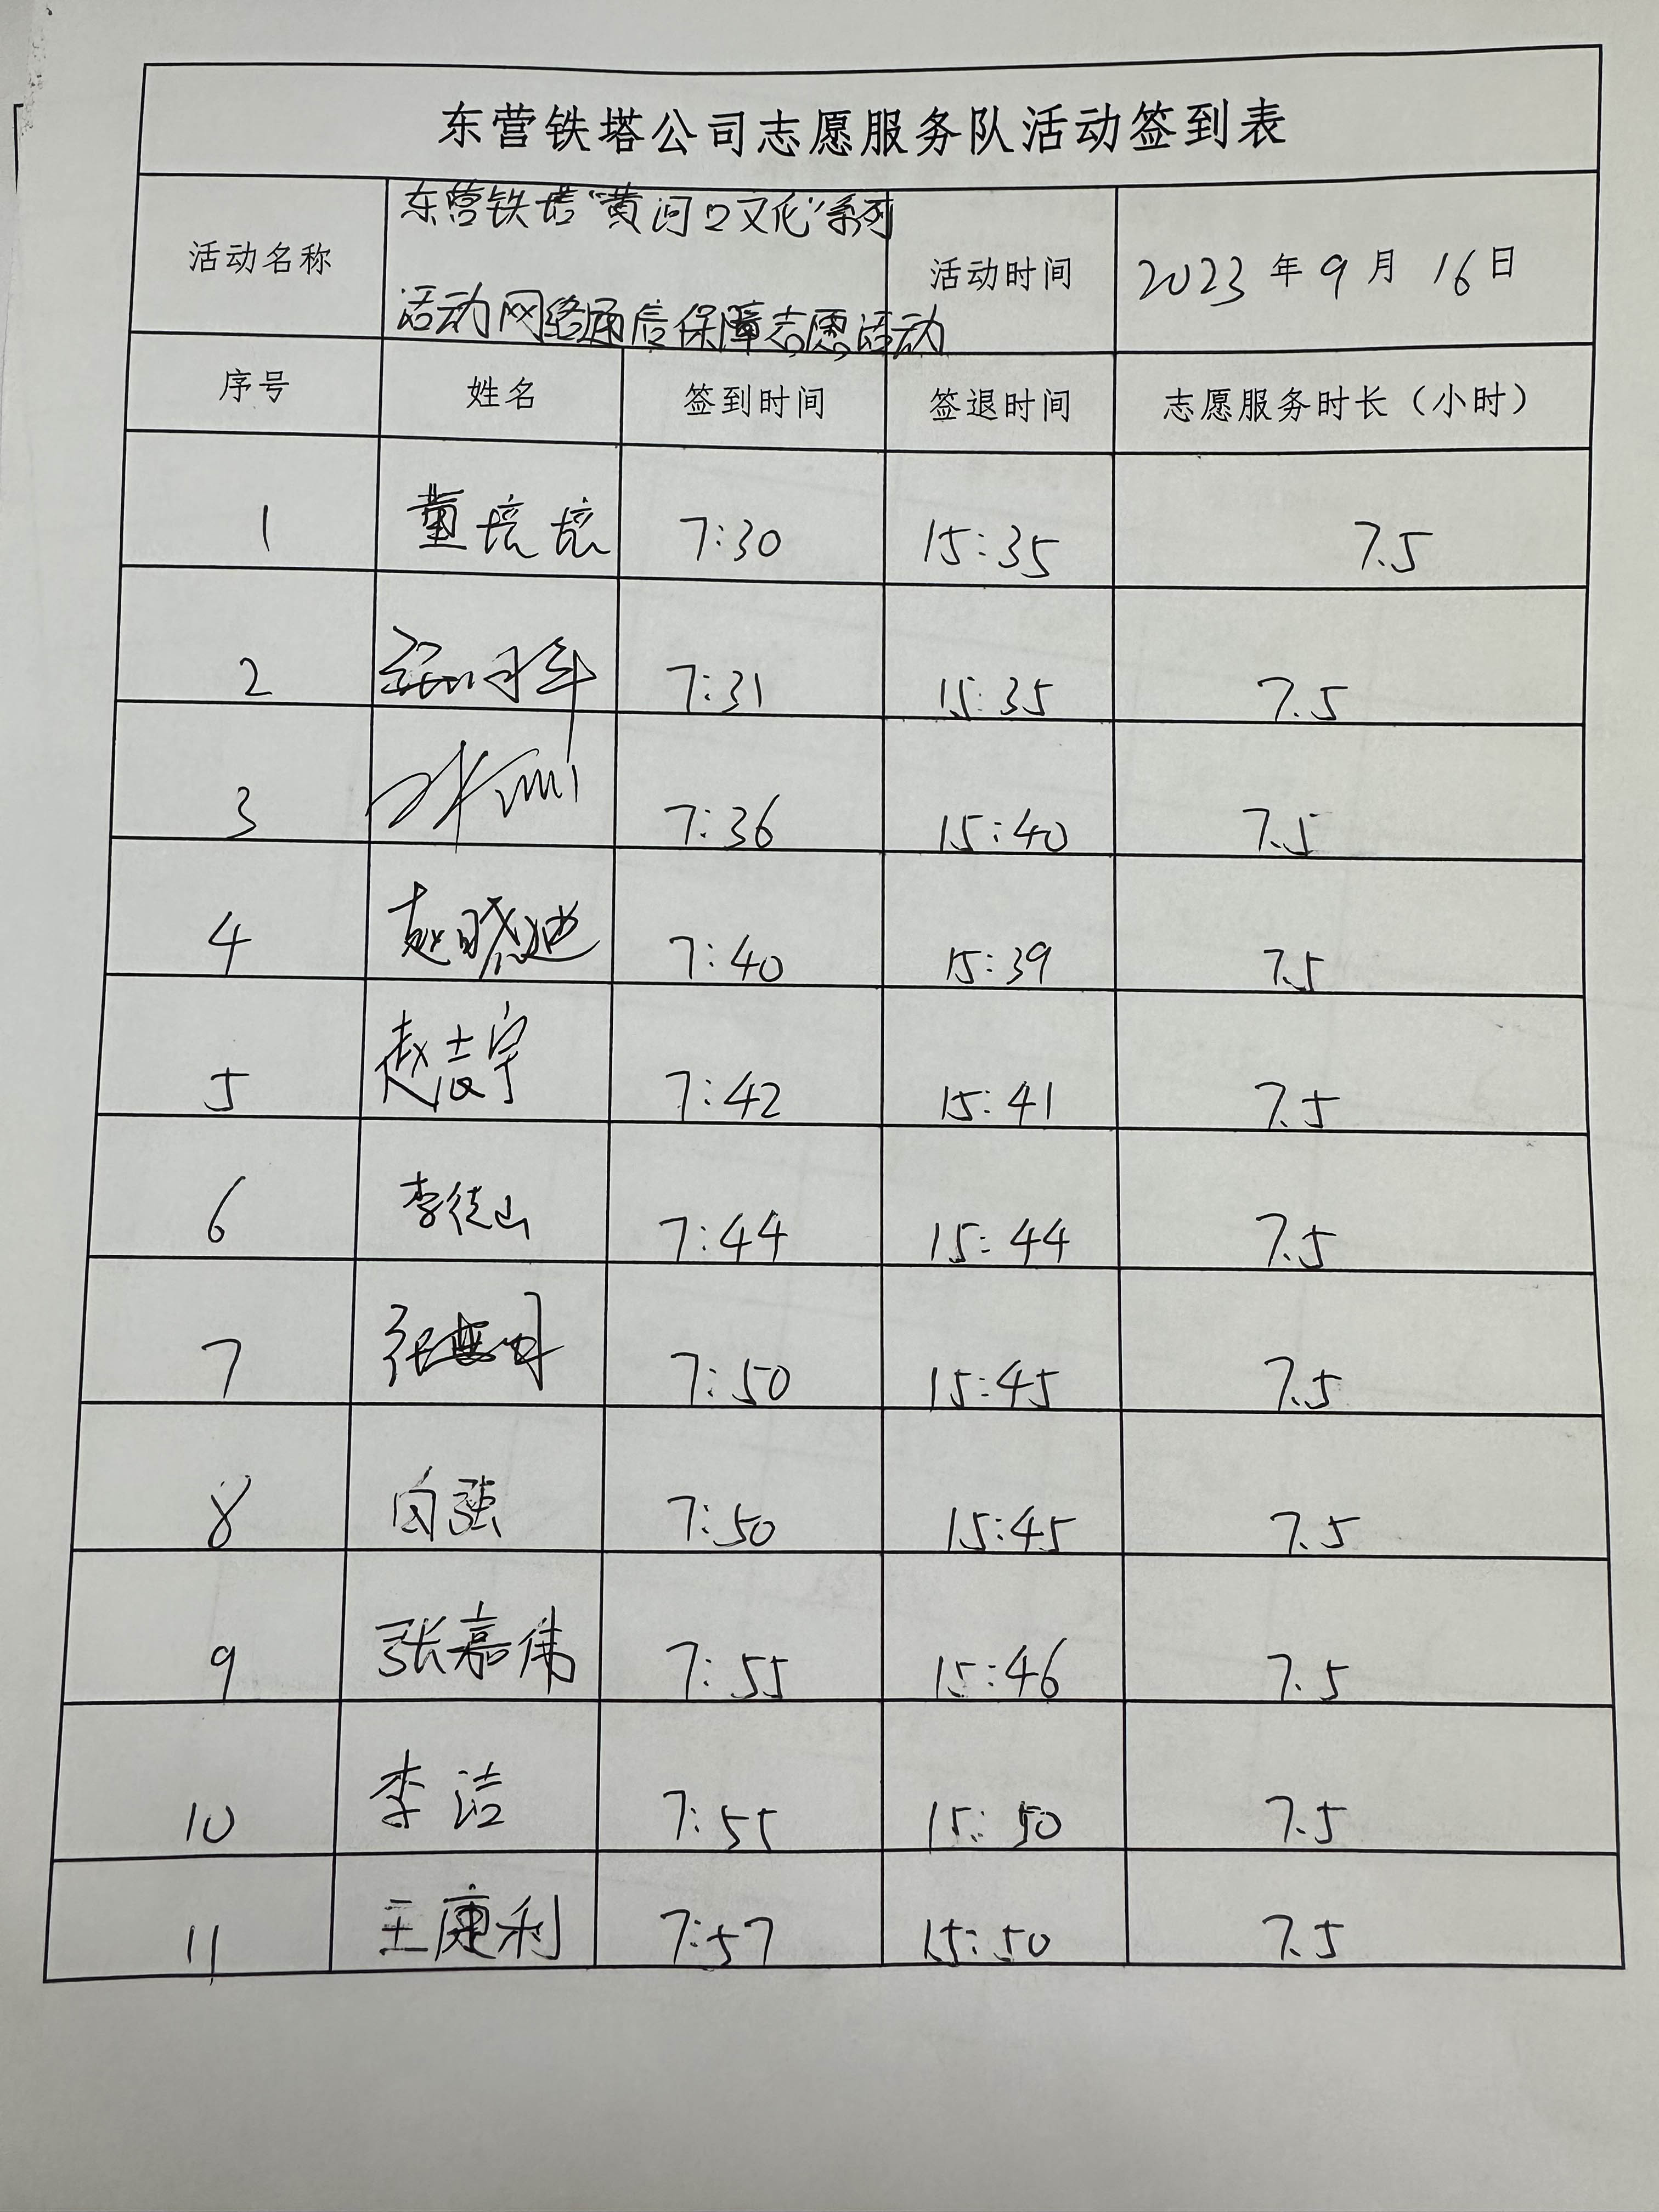 东营铁塔公司志愿服务队活动签到表
活动名称 东营铁塔“黄河口文化”系列
活动网络通信保障志愿活动 活动时间 2023年9月16日
序号 姓名 签到时间 签退时间 志愿服务时长（小时）
1 董培培 7:30 15:35 7.5
2 7:31 15:35 7.5
3 7:36 15:40 7.5
4 赵晓迪 7:40 15:39 7.5
5 赵志宇 7:42 15:41 7.5
6 李德山 7:44 15:44 7.5
7 7:50 15:45 7.5
8 白强 7:50 15:45 7.5
9 张嘉伟 7:55 15:46 7.5
10 李洁 7:55 15:50 7.5
11 王康利 7:57 15:50 7.5